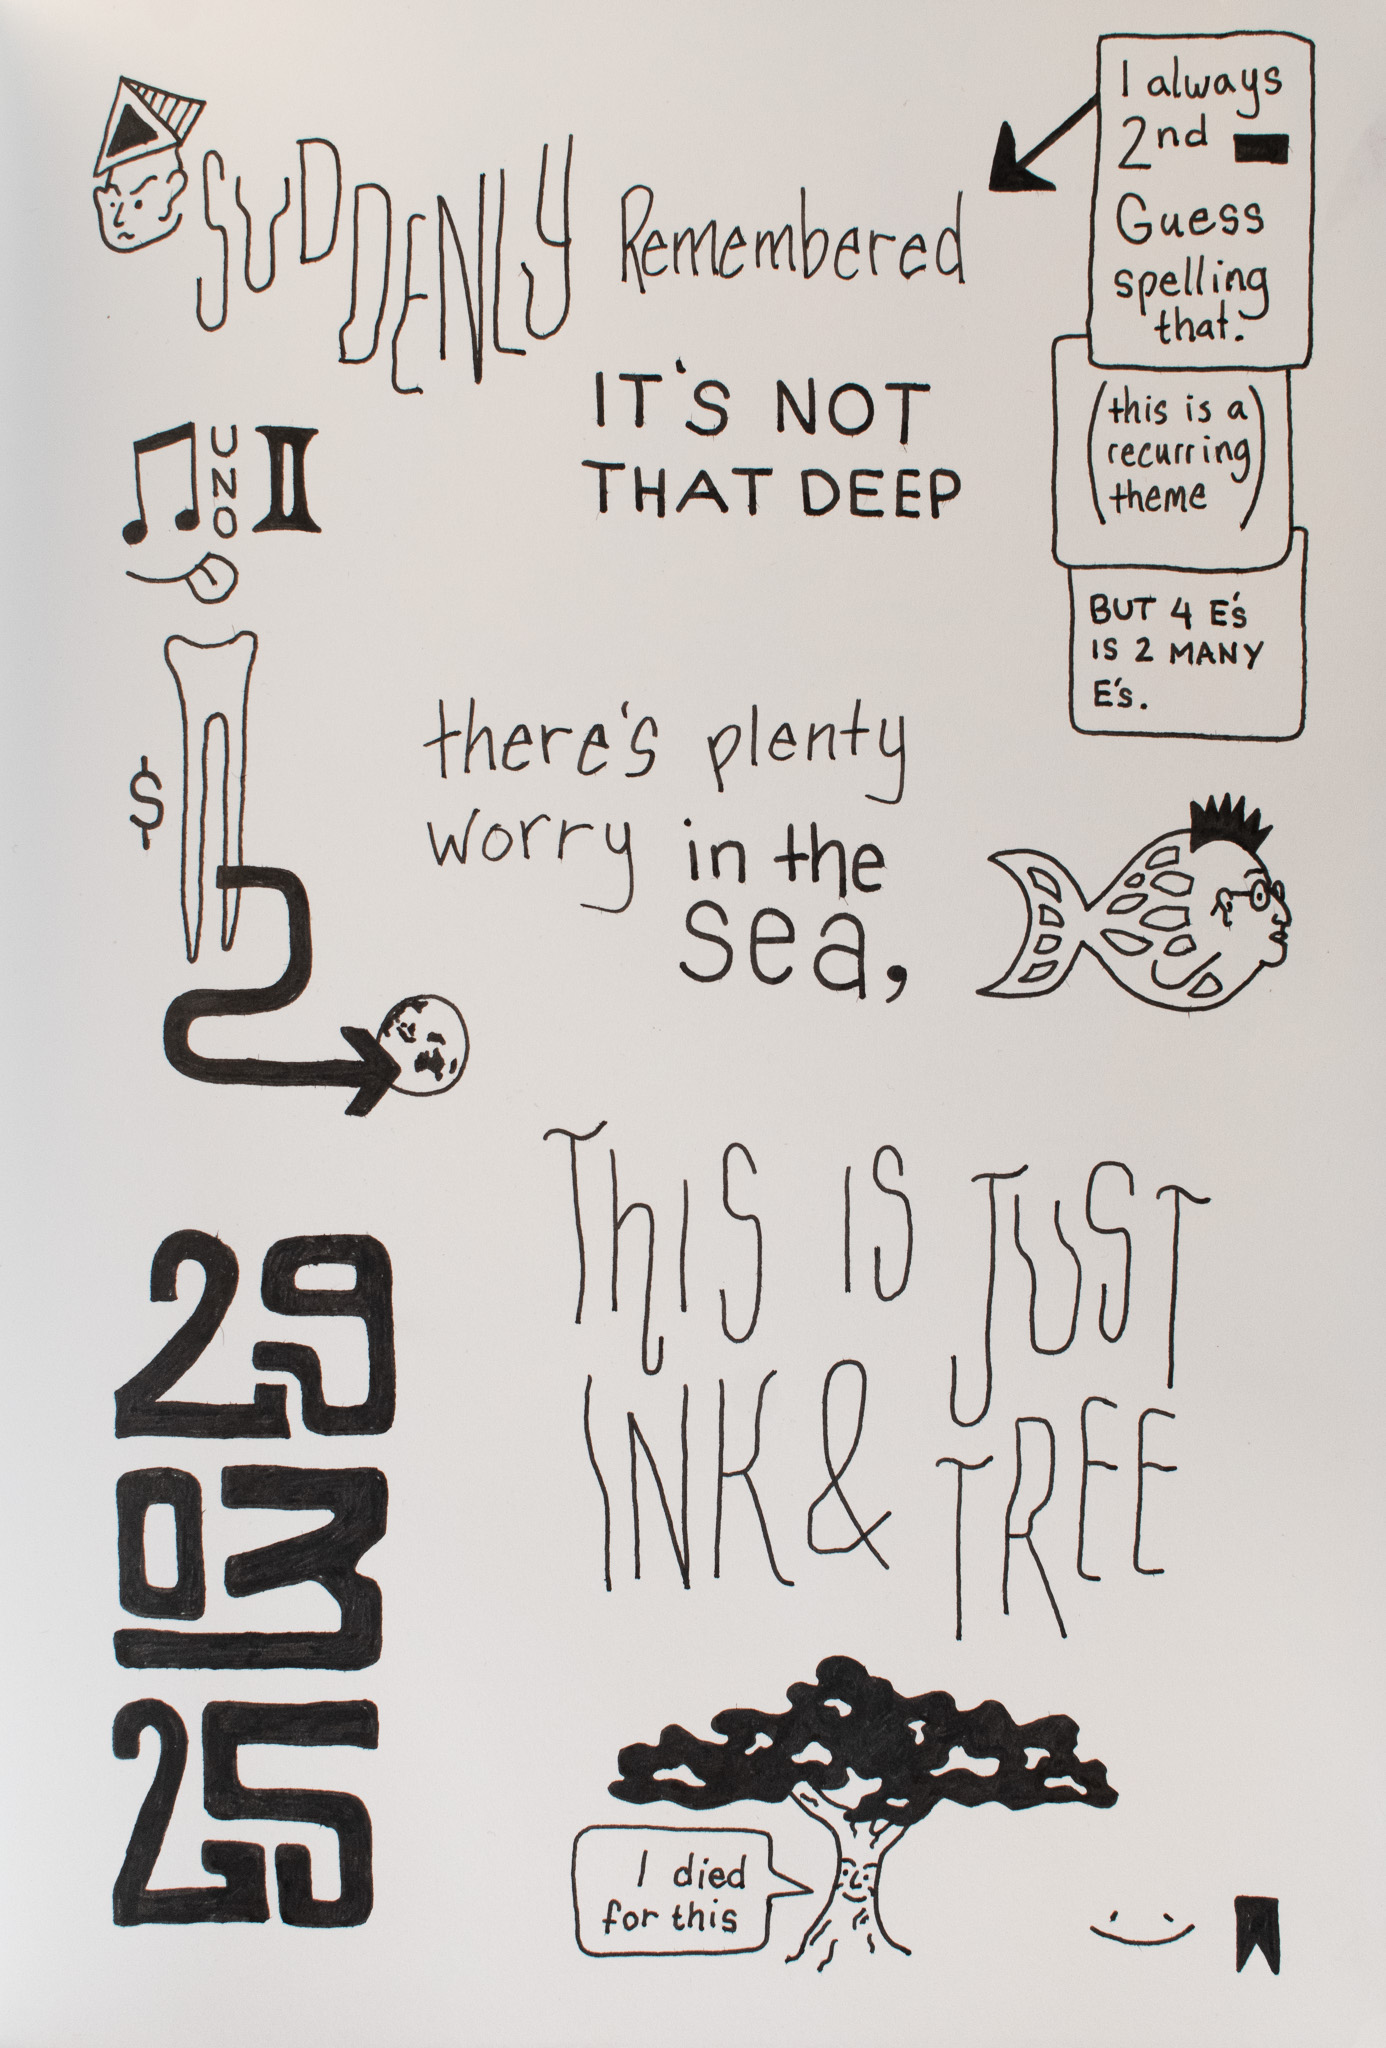 SUDDENLY Remembered
IT'S NOT
THAT DEEP
I always
2nd
Guess
spelling
that.
(this is a
recurring
theme)
BUT 4 E's
IS 2 MANY
E's.
UNO
II
$
there's plenty
worry in the
sea,
THIS IS JUST
INK & TREE
29
03
25
I died
for this